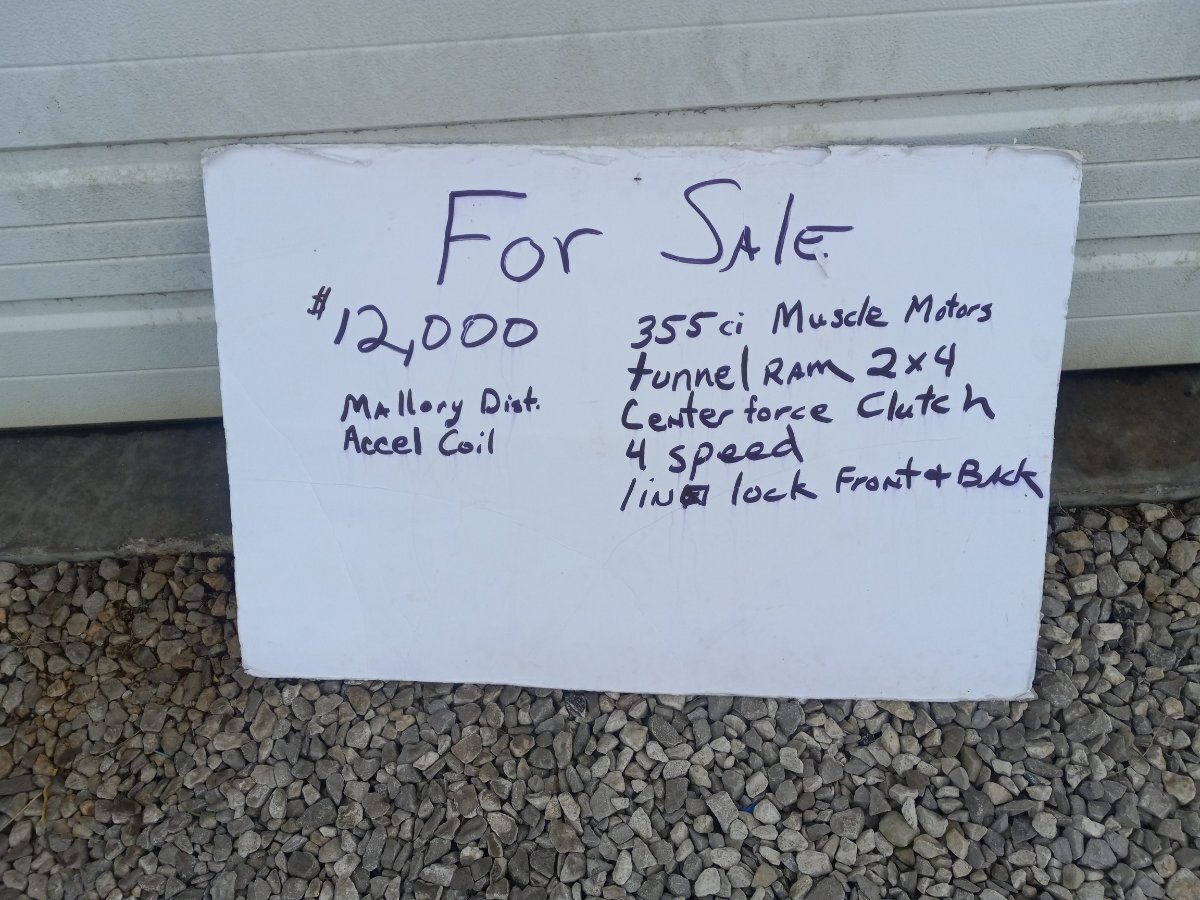 For Sale
$12,000
Mallory Dist.
Accel Coil
355ci Muscle Motors
tunnel RAM 2x4
Center force Clutch
4 speed
line lock Front & Back